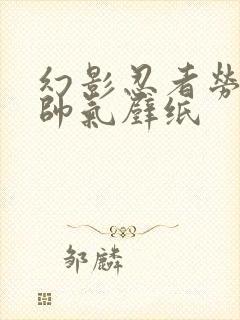 幻影忍者勞
帥氣壁纸
邹麟